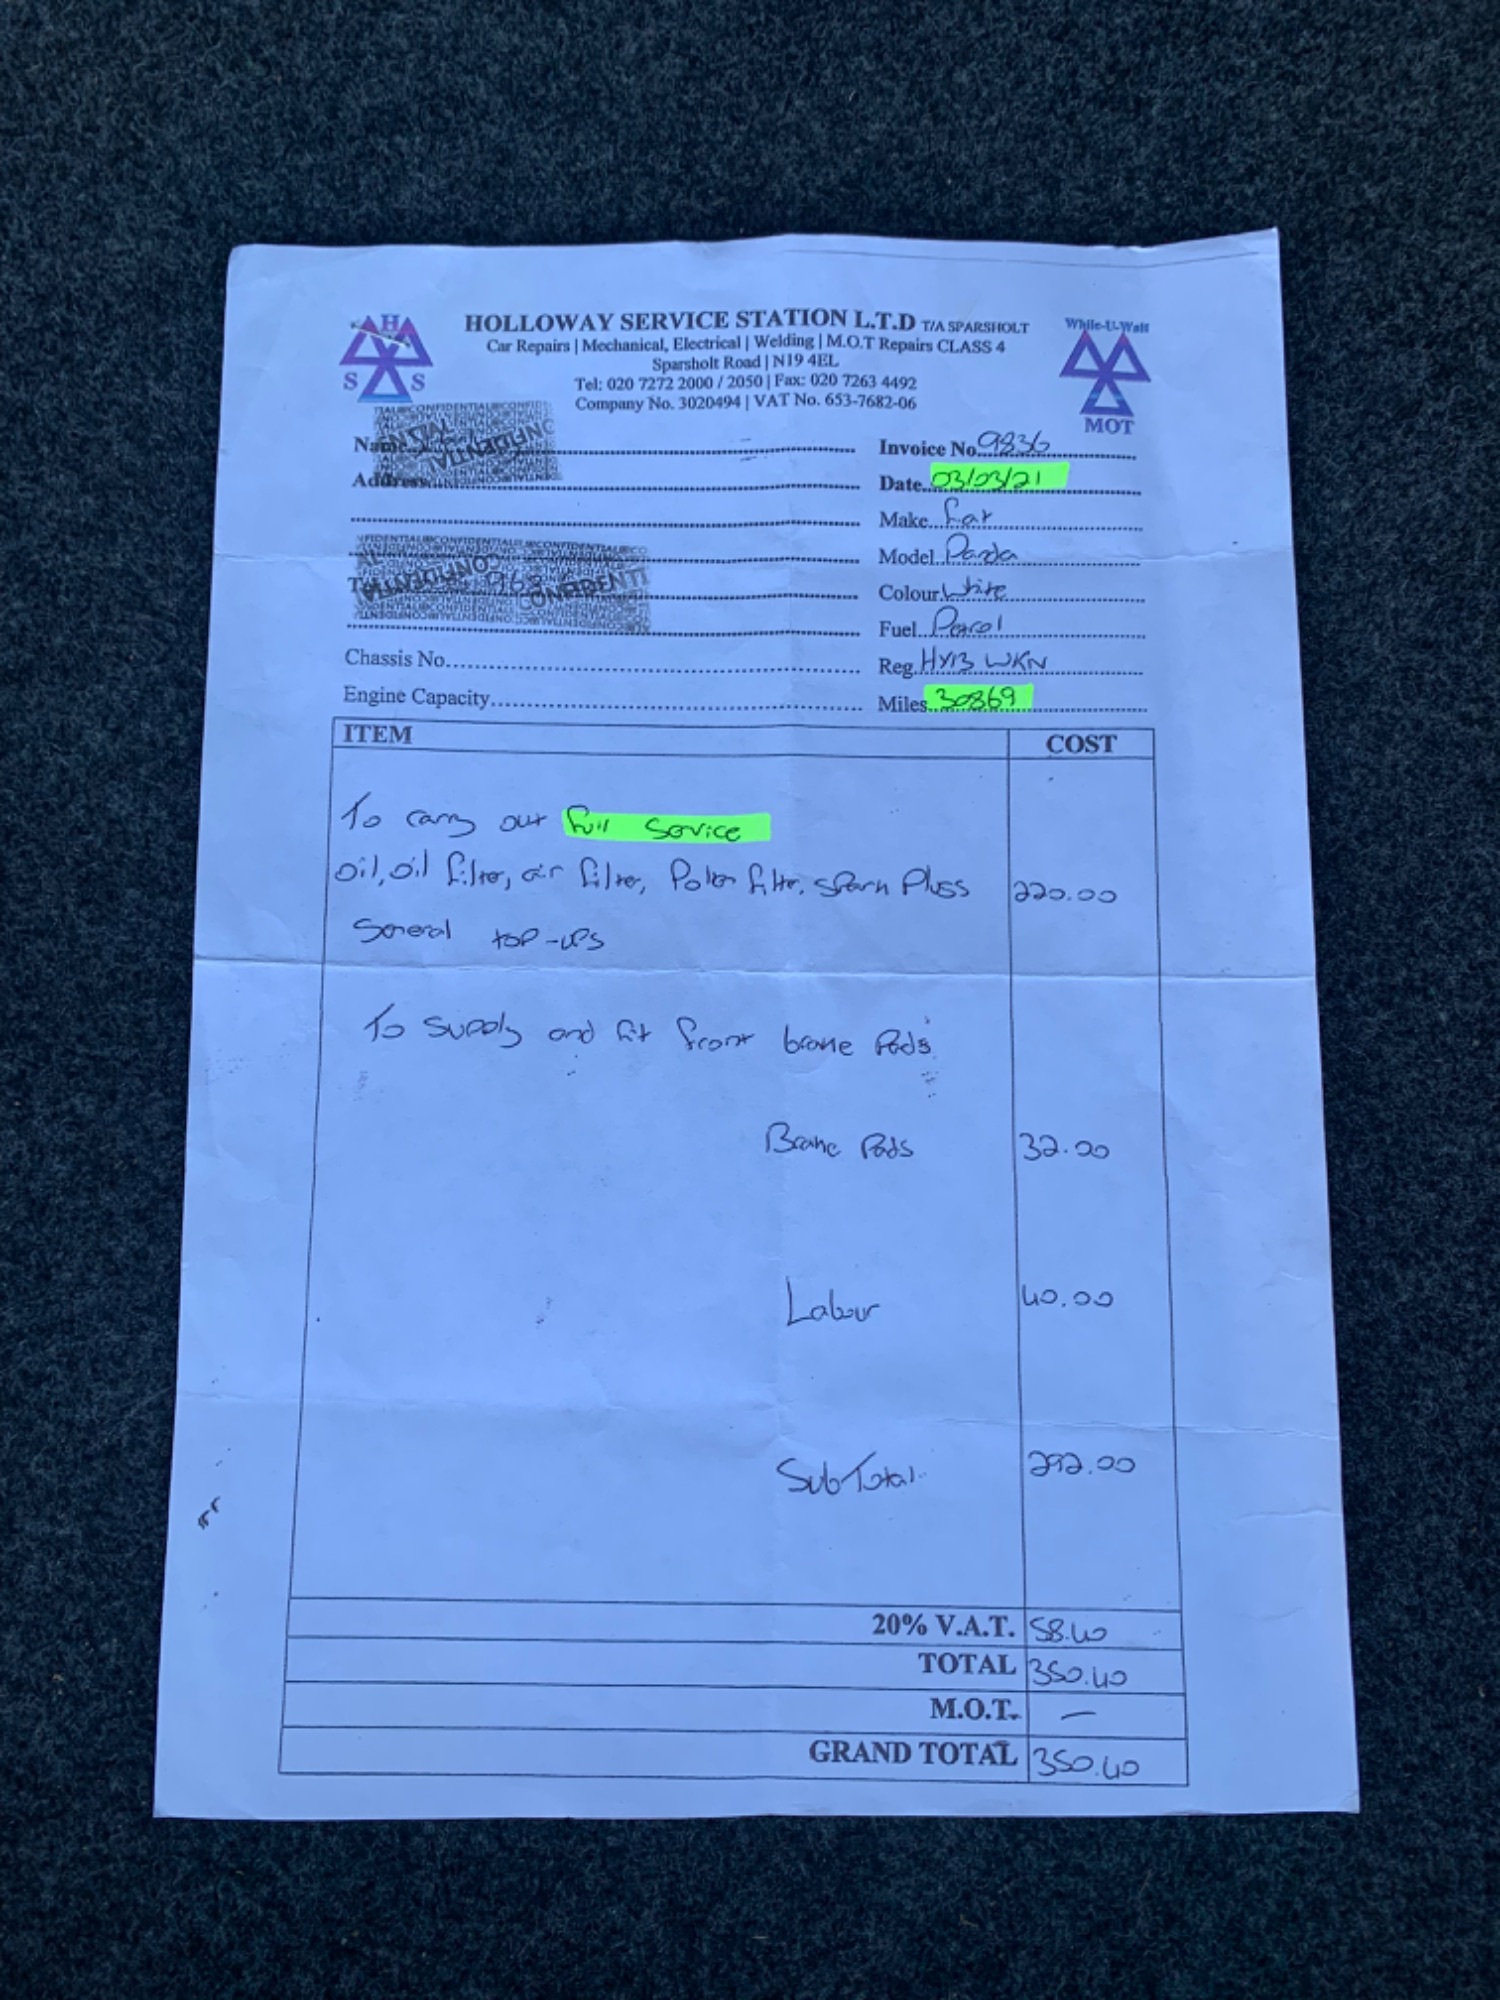 H
S S
HOLLOWAY SERVICE STATION L.T.D T/A SPARSHOLT
Car Repairs | Mechanical, Electrical | Welding | M.O.T Repairs CLASS 4
Sparsholt Road | N19 4EL
Tel: 020 7272 2000 / 2050 | Fax: 020 7263 4492
Company No. 3020494 | VAT No. 653-7682-06
While-U-Wait
MOT
Name
Invoice No. 9836
Address
Date. 03/03/21
Make
Model. Panda
Colour White
Fuel. Petrol
Chassis No.
Reg. HY13 WKN
Engine Capacity
Miles 30869
ITEM COST
To carry out full Service
oil, oil filter, air filter, Pollen filter, spark Plugs 220.00
General top-ups
To supply and fit front brake Pads
Brake Pads 32.00
Labour 40.00
Sub Total 292.00
20% V.A.T. 58.40
TOTAL 350.40
M.O.T. —
GRAND TOTAL 350.40